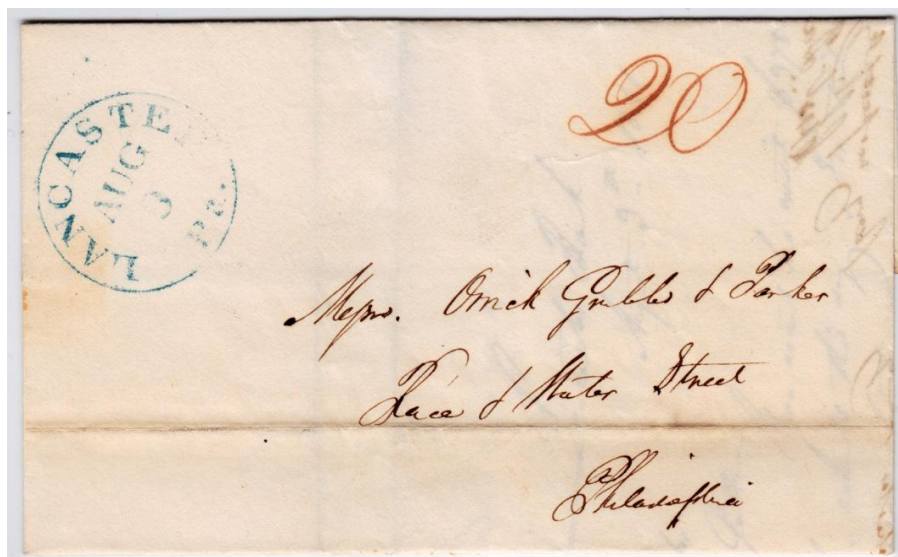 LANCASTER Pa.
AUG
3
20
Messrs. Orrick Grubb & Parker
Race & Water Street
Philadelphia